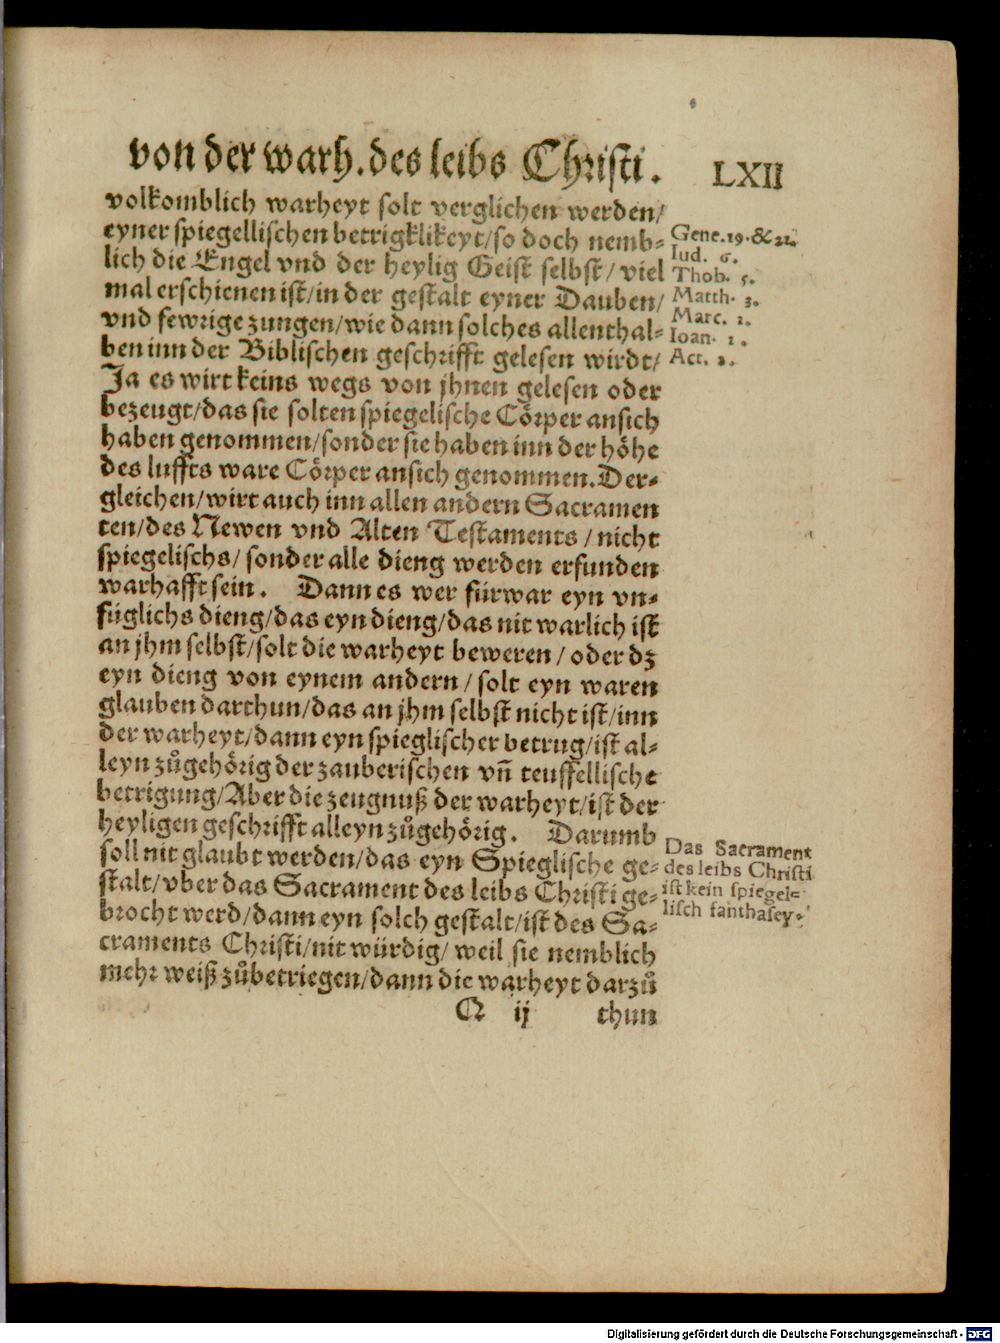 von der warh. des leibs Christi. LXII
volkomblich warheyt solt verglichen werden/
eyner spiegellischen betrigklikeyt/so doch nemb⸗
lich die Engel vnd der heylig Geist selbst/ viel
mal erschienen ist/in der gestalt eyner Dauben/
vnd fewrige zungen/wie dann solches allenthal⸗
ben inn der Biblischen geschrifft gelesen wirdt/
Ja es wirt keins wegs von jhnen gelesen oder
bezeugt/das sie solten spiegelische Cörper ansich
haben genommen/sonder sie haben inn der höhe
des luffts ware Cörper ansich genommen. Der⸗
gleichen/wirt auch inn allen andern Sacramen
ten/des Newen vnd Alten Testaments / nicht
spiegelischs/ sonder alle dieng werden erfunden
warhafft sein. Dann es wer fürwar eyn vn⸗
füglichs dieng/das eyn dieng/das nit warlich ist
an jhm selbst/solt die warheyt beweren / oder dz
eyn dieng von eynem andern / solt eyn waren
glauben darthun/das an jhm selbst nicht ist/inn
der warheyt/dann eyn spieglischer betrug/ist al⸗
leyn zůgehörig der zauberischen vñ teuffellische
betrigung/Aber die zeugnuß der warheyt/ist der
heyligen geschrifft alleyn zůgehörig. Darumb
soll nit glaubt werden/das eyn Spieglische ge⸗
stalt/vber das Sacrament des leibs Christi ge⸗
brocht werd/dann eyn solch gestalt/ist des Sa⸗
craments Christi/nit würdig/ weil sie nemblich
mehr weiß zůbetriegen/dann die warheyt darzů
Q ij thun
Gene. 19. & 22.
Iud. 6.
Thob. 5.
Matth. 3.
Marc. 1.
Ioan. 1.
Act. 2.
Das Sacrament
des leibs Christi
ist kein spiegel⸗
lisch fanthasey.
Digitalisierung gefördert durch die Deutsche Forschungsgemeinschaft - DFG